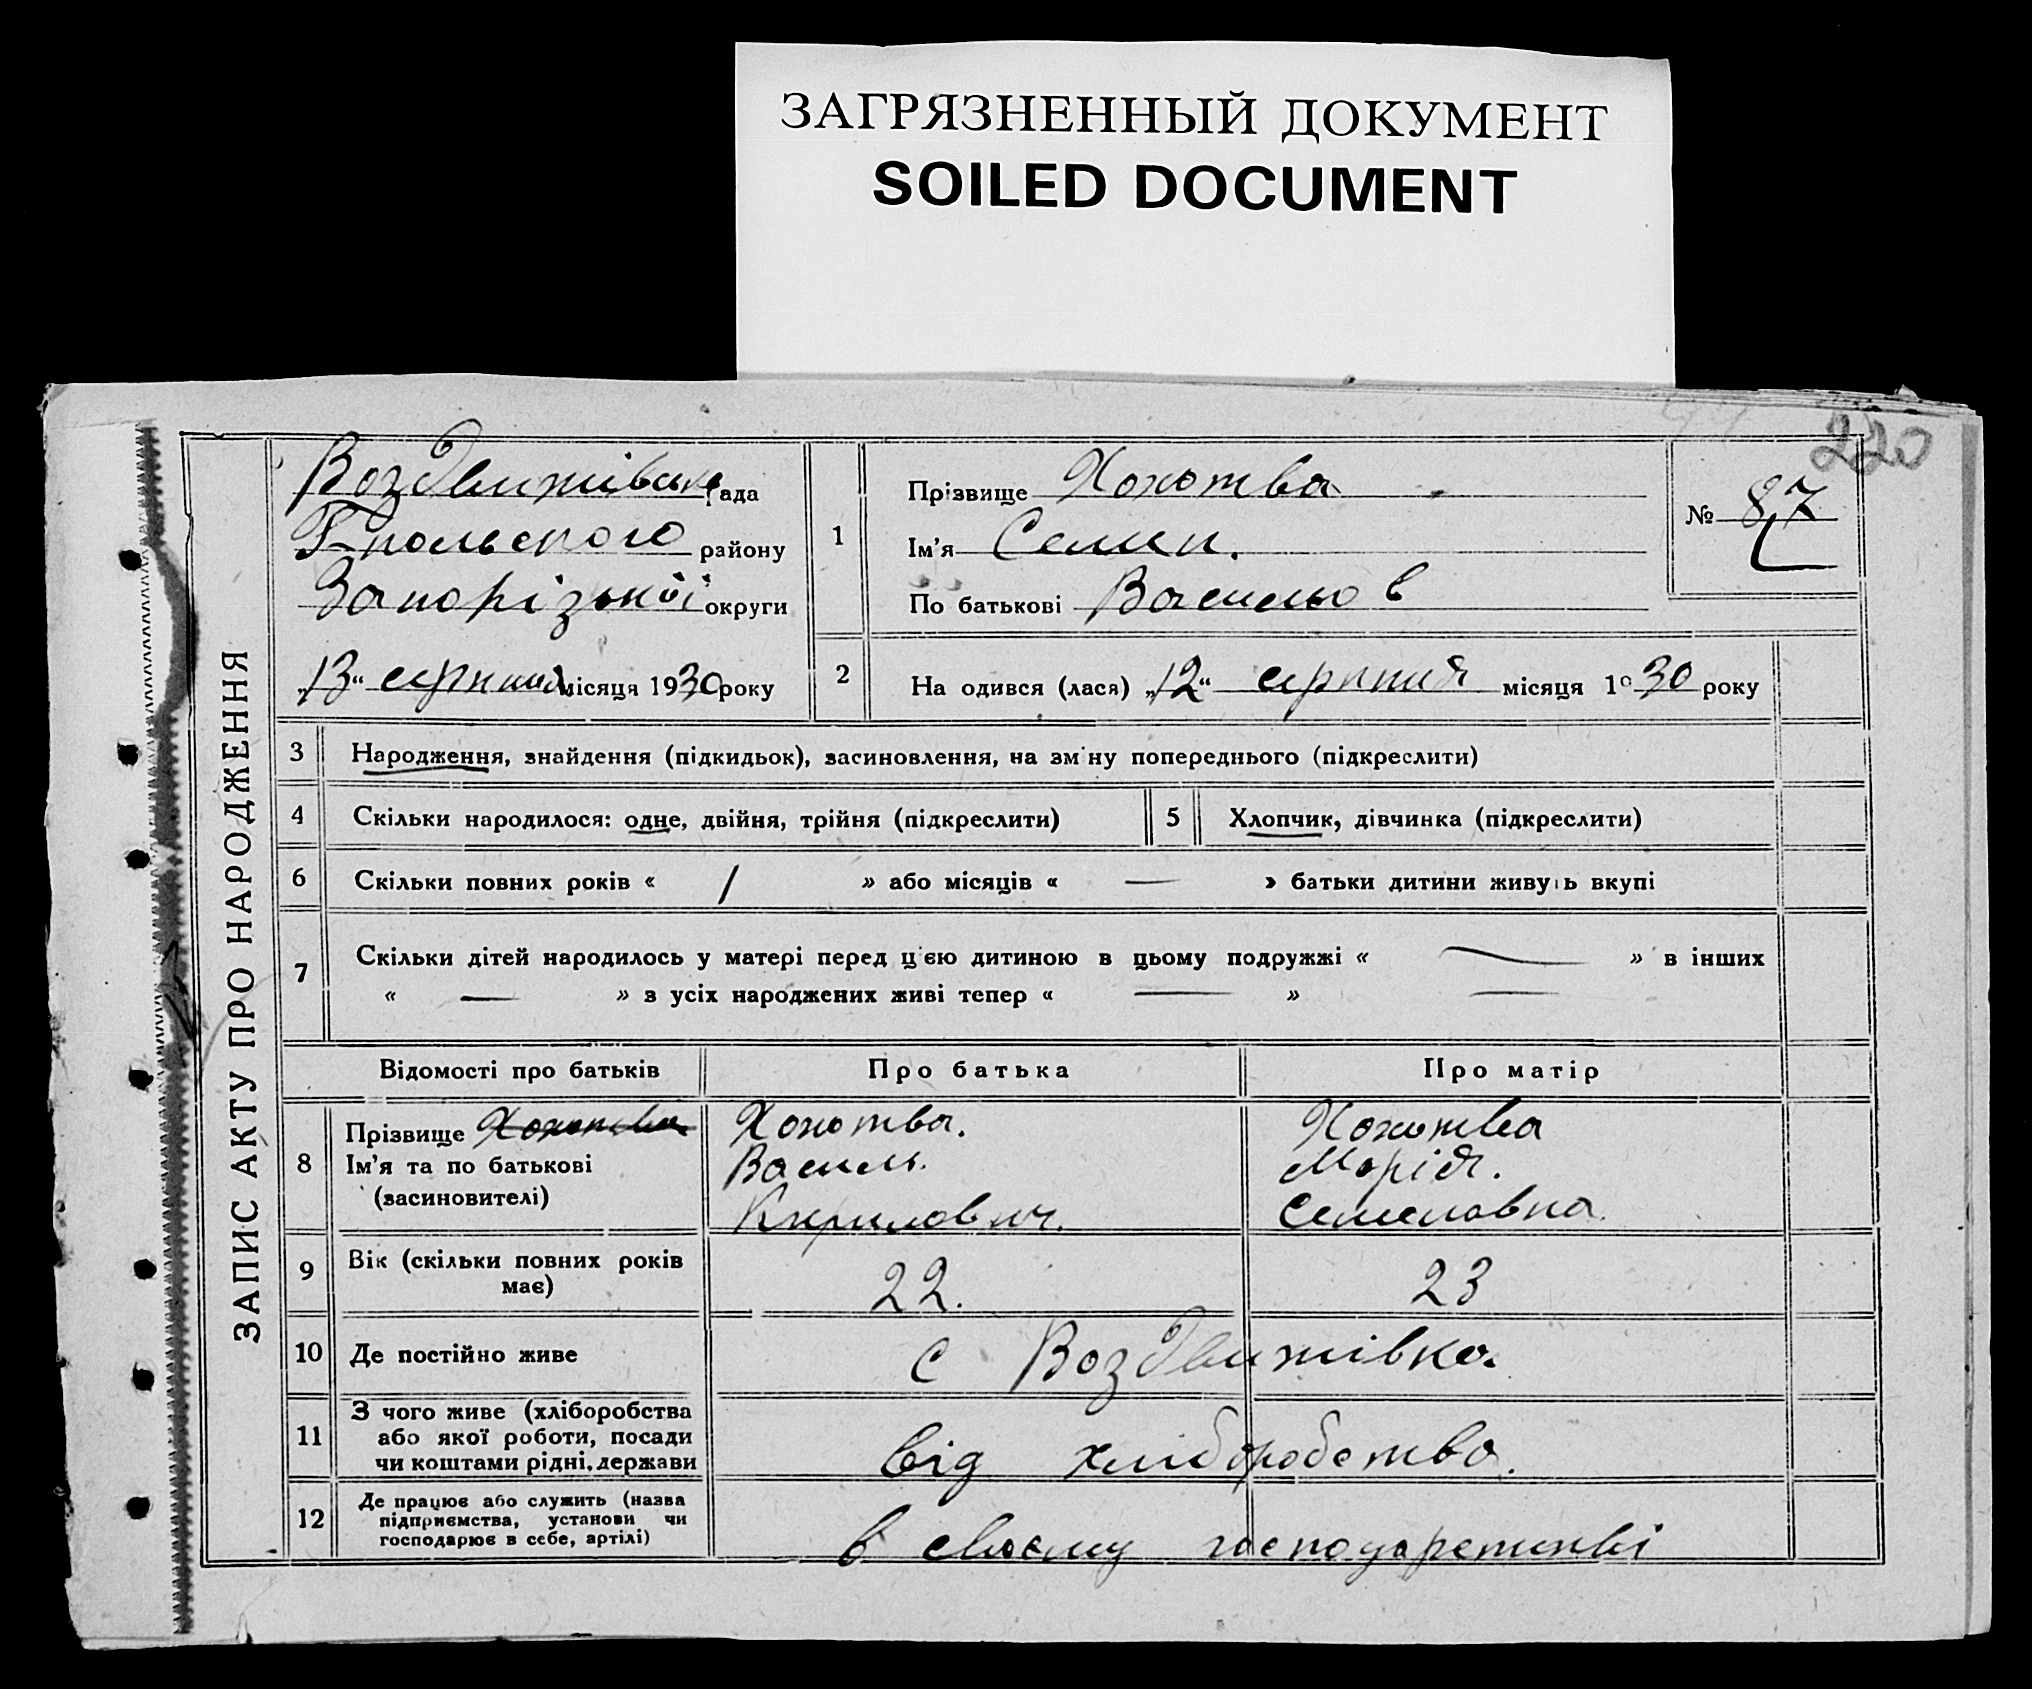 ЗАГРЯЗНЕННЫЙ ДОКУМЕНТ
SOILED DOCUMENT
220
ЗАПИС АКТУ ПРО НАРОДЖЕННЯ
Воздвижівська рада
Г-польського району
Запорізької округи
„13“ серпня місяця 1930 року
1
Прізвище Хохотва
Ім'я Семен.
По батькові Васильов
№ 87
2
На одився (лася) „12“ серпня місяця 19 30 року
3 Народження, знайдення (підкидьок), засиновлення, на зміну попереднього (підкреслити)
4 Скільки народилося: одне, двійня, трійня (підкреслити)
5 Хлопчик, дівчинка (підкреслити)
6 Скільки повних років « 1 » або місяців « — » батьки дитини живуть вкупі
7 Скільки дітей народилось у матері перед цією дитиною в цьому подружжі « — » в інших
« — » з усіх народжених живі тепер « — » —
Відомості про батьків Про батька Про матір
8 Прізвище Хохотва
Ім'я та по батькові
(засиновителі)
Хохотва.
Василь.
Кирилович.
Хохотва
Марія.
Семеновна.
9 Вік (скільки повних років має) 22. 23
10 Де постійно живе с Воздвижівка.
11 З чого живе (хліборобства
або якої роботи, посади
чи коштами рідні, держави
від хліборобства.
12 Де працює або служить (назва
підприємства, установи чи
господарює в себе, артілі)
в своєму господарстві